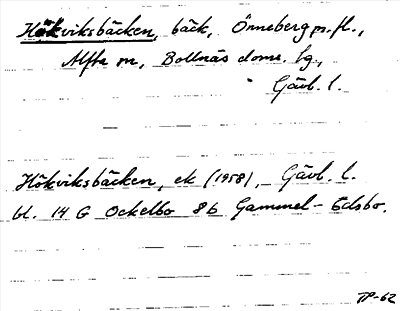 Hökviksbäcken, bäck, Önneberg m.fl.,
Alfta sn, Bollnäs doms. lg.,
Gävl. l.
Hökviksbäcken, ek (1958), Gävl. l.
bl. 14 G Ockelbo 8 b Gammel-Edsbo.
TP-62